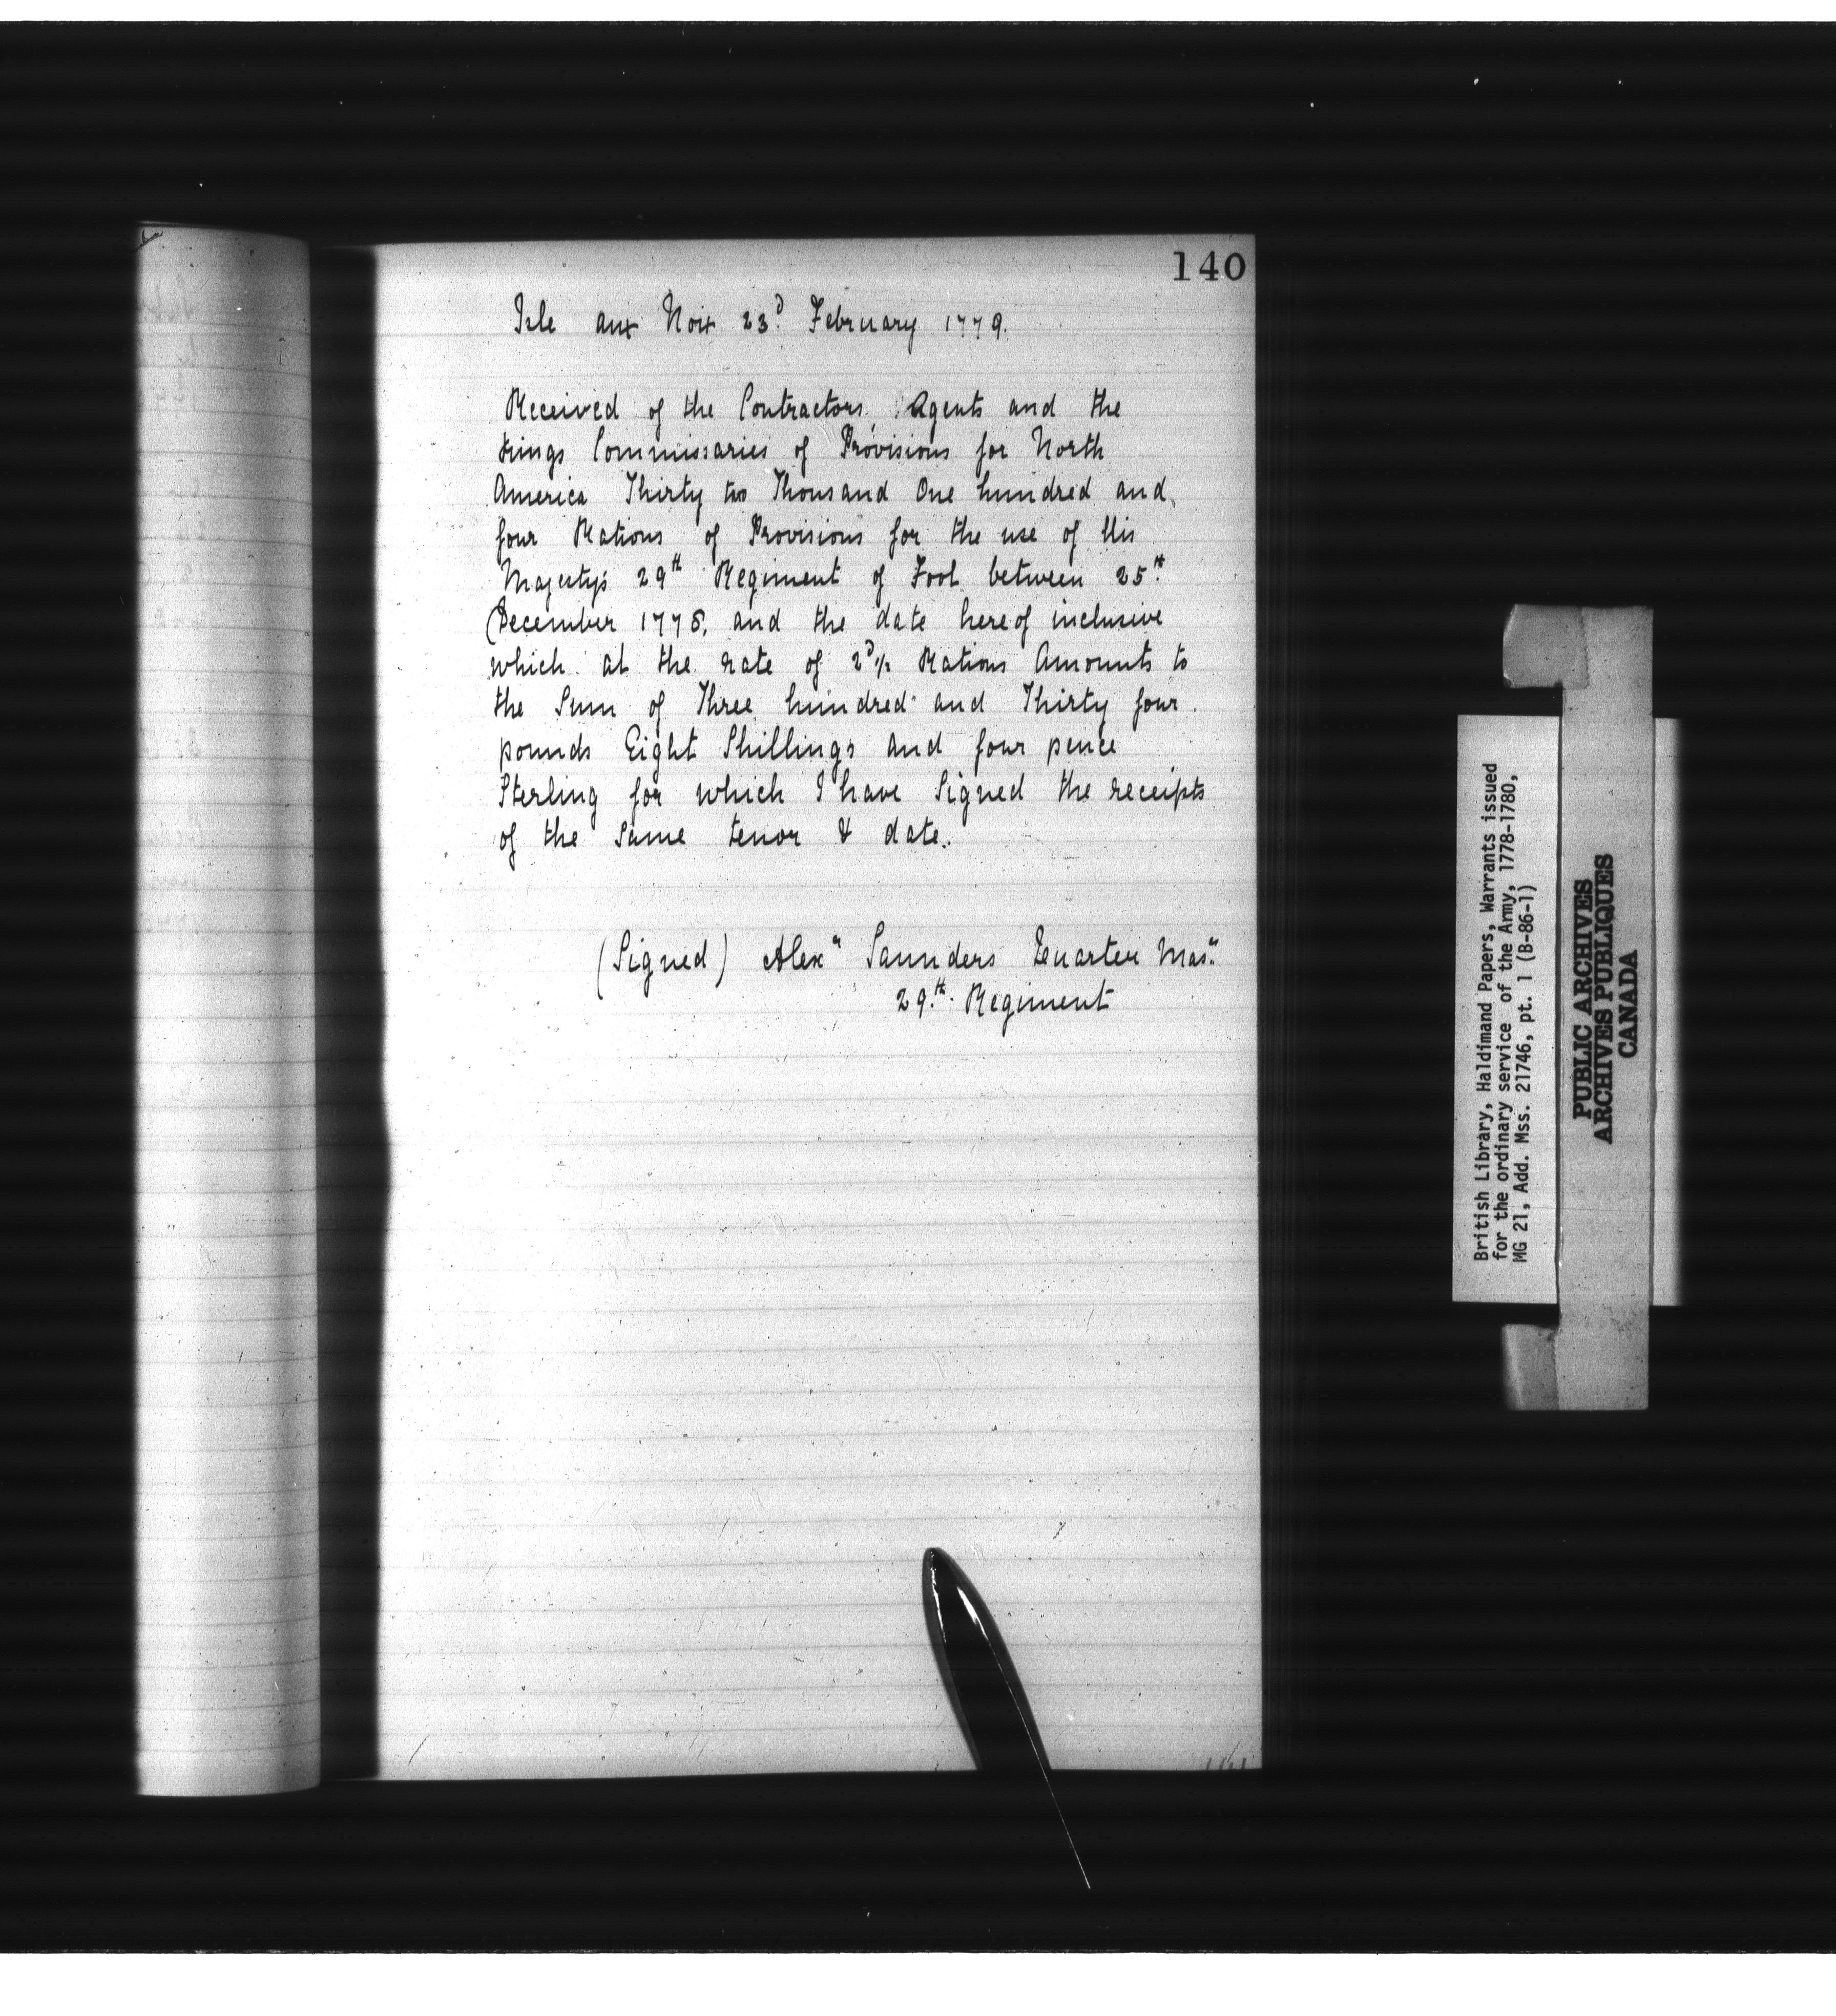 140
Isle aux Noix 23d. February 1779.
Received of the Contractors Agents and the
Kings Commissaries of Provisions for North
America Thirty two Thousand One hundred and
four Rations of Provisions for the use of His
Majestys 29th Regiment of Foot between 25th.
December 1778, and the date hereof inclusive
which at the rate of 2d½ Rations Amounts to
the Sum of Three hundred and Thirty four
pounds Eight Shillings and four pence
Sterling for which I have Signed the receipts
of the same tenor & date.
(Signed) Alexr Saunders Quarter Masr.
29th. Regiment
British Library, Haldimand Papers, Warrants issued
for the ordinary service of the Army, 1778-1780,
MG 21, Add. Mss. 21746, pt. 1 (B-86-1)
PUBLIC ARCHIVES
ARCHIVES PUBLIQUES
CANADA